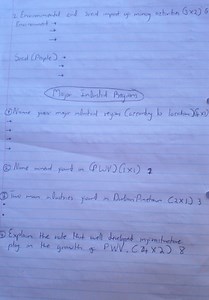 2. Environmental and Social impact of mining activities (2x2) 
Environment →
→
Social (People)
→
→
Major Industrial Regions
① Name four major industrial regions (according to location) (4x1)
② Name mineral found in (PWV) (1x1) 2
③ Give main industries found in Durban Pinetown (2x1) 3
⑤ Explain the role that well developed infrastructure
play in the growth of PWV. (2x2) 8